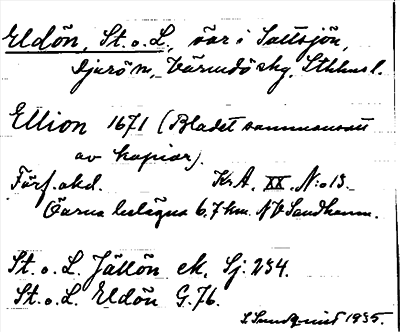 Eldön, St. o. L., öar i Saltsjön,
Djurö sn, Värmdö skg, Sthlms l.
Ellion 1671 (Bladet sammansatt
av kopior).
Förf. okd. Kr.A. XX. N:o 13.
Öarna belägna 6,7 km. NV Sandhamn.
St. o. L. Jällön ek. Sj: 234.
St. o. L. Eldön G. 76.
S. Sundquist 1935.